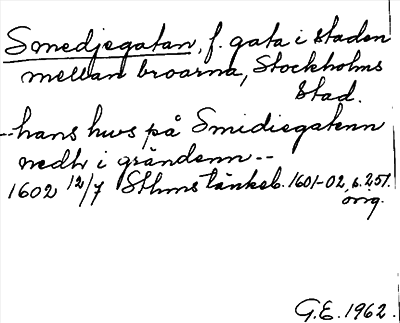 Smedjegatan, f. gata i staden
mellan broarna, Stockholms
stad.
--hans hws på Smidiegatenn
nedh i grändenn--
1602 12/7 Sthms tänkeb. 1601-02, s. 251.
orig.
G.E. 1962.